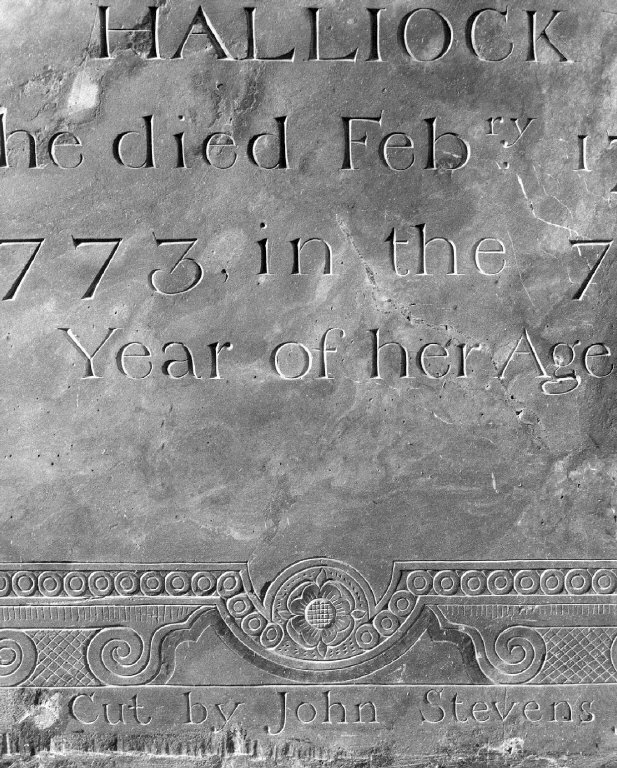 HALLIOCK
he died Feb.ry 1
773, in the 7
Year of her Age
Cut by John Stevens